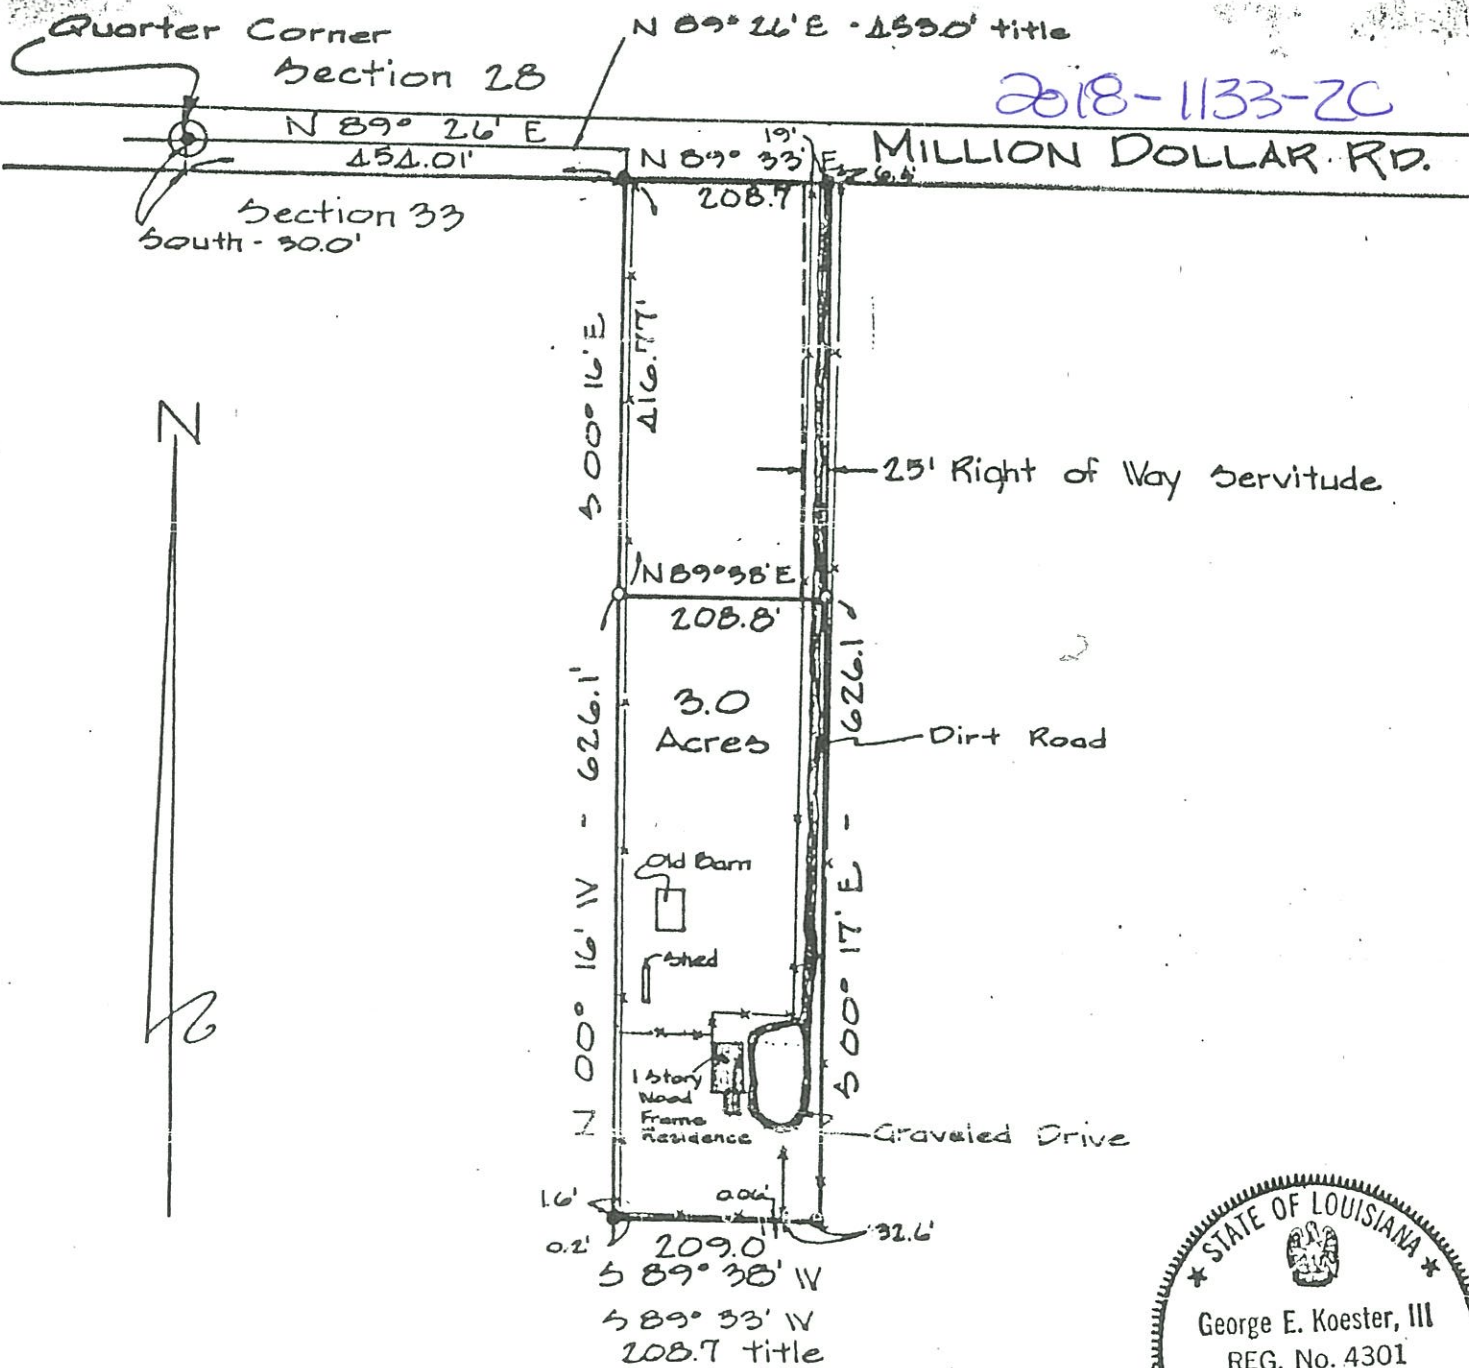 Quarter Corner
Section 28
N 89° 26' E - 453.0' title
2018-1133-ZC
N 89° 26' E
454.01'
N 89° 33' E
19'
6.4'
MILLION DOLLAR RD.
208.7
Section 33
South - 30.0'
S 00° 16' E
416.77'
N
25' Right of Way Servitude
N 89° 38' E
208.8'
3.0
Acres
N 00° 16' W - 626.1'
S 00° 17' E - 626.1
Dirt Road
Old Barn
Shed
1 Story
Wood
Frame
Residence
Graveled Drive
1.6'
0.06'
0.2'
209.0'
32.6'
S 89° 38' W
S 89° 33' W
208.7 title
STATE OF LOUISIANA
George E. Koester, III
REG. No. 4301